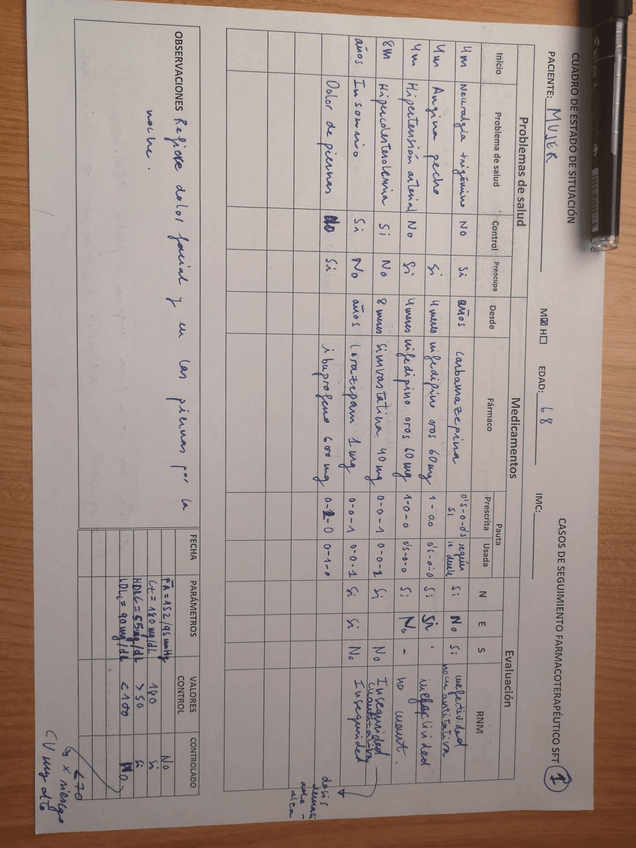 CUADRO DE ESTADO DE SITUACIÓN
CASOS DE SEGUIMIENTO FARMACOTERAPÉUTICO SFT 1
PACIENTE: MUJER M☒ H☐ EDAD: 68 IMC:
Problemas de salud Medicamentos Evaluación
Inicio Problema de salud Control Preocupa Desde Fármaco Pauta Prescrita Usada N E S RNM
4m Neuralgia trigémino NO Si años carbamazepina 0's-0-0's según le duele Si No Si inefectividad no cuantitativa
4m Angina pecho Si 4 meses nifedipino oros 60mg 1-0-0 0's-0-0 Si inefectividad
4m Hipertensión arterial No Si 4 meses nifedipino oros 60mg 1-0-0 0's-0-0 Si No - no cuant.
8m Hipercolesterolemia Si No 8 meses simvastatina 40mg 0-0-1 0-0-1 Si No Inseguridad
años Insomnio Si No años lorazepam 1mg 0-0-1 0-0-1 Si Si No Inseguridad
Dolor de piernas Si ibuprofeno 600mg 0-1-0 0-1-0
dosis
OBSERVACIONES Refiere dolor facial y en las piernas por la
noche.
FECHA PARÁMETROS VALORES CONTROL CONTROLADO
PA=152/95 mmHg No
Ct=180mg/dL 190 Si
HDLC=55mg/dL >50 Si
LDL=90mg/dL <100 No
<70
x riesgo
CV muy alto